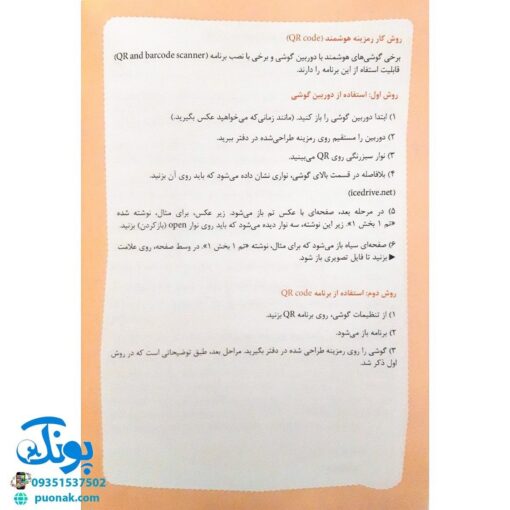 روش کار رمزینه هوشمند (QR code)
برخی گوشی‌های هوشمند با دوربین گوشی و برخی با نصب برنامه (QR and barcode scanner)
قابلیت استفاه از این برنامه را دارند.
روش اول: استفاده از دوربین گوشی
۱) ابتدا دوربین گوشی را باز کنید. (مانند زمانی‌که می‌خواهید عکس بگیرید.)
۲) دوربین را مستقیم روی رمزینه طراحی‌شده در دفتر ببرید.
۳) نوار سبزرنگی روی QR می‌بینید.
۴) بلافاصله در قسمت بالای گوشی، نواری نشان داده می‌شود که باید روی آن بزنید.
(icedrive.net)
۵) در مرحله بعد، صفحه‌ای با عکس تم باز می‌شود. زیر عکس، برای مثال، نوشته شده
«تم ۱ بخش ۱». زیر این نوشته، سه نوار دیده می‌شود که باید روی نوار open (بازکردن) بزنید.
۶) صفحه‌ای سیاه باز می‌شود که برای مثال، نوشته «تم ۱ بخش ۱». در وسط صفحه، روی علامت
◀ بزنید تا فایل تصویری باز شود.
روش دوم: استفاده از برنامه QR code
۱) از تنظیمات گوشی، روی برنامه QR بزنید.
۲) برنامه باز می‌شود.
۳) گوشی را روی رمزینه طراحی شده در دفتر بگیرید. مراحل بعد، طبق توضیحاتی است که در روش
اول ذکر شد.
پونک
09351537502
puonak.com